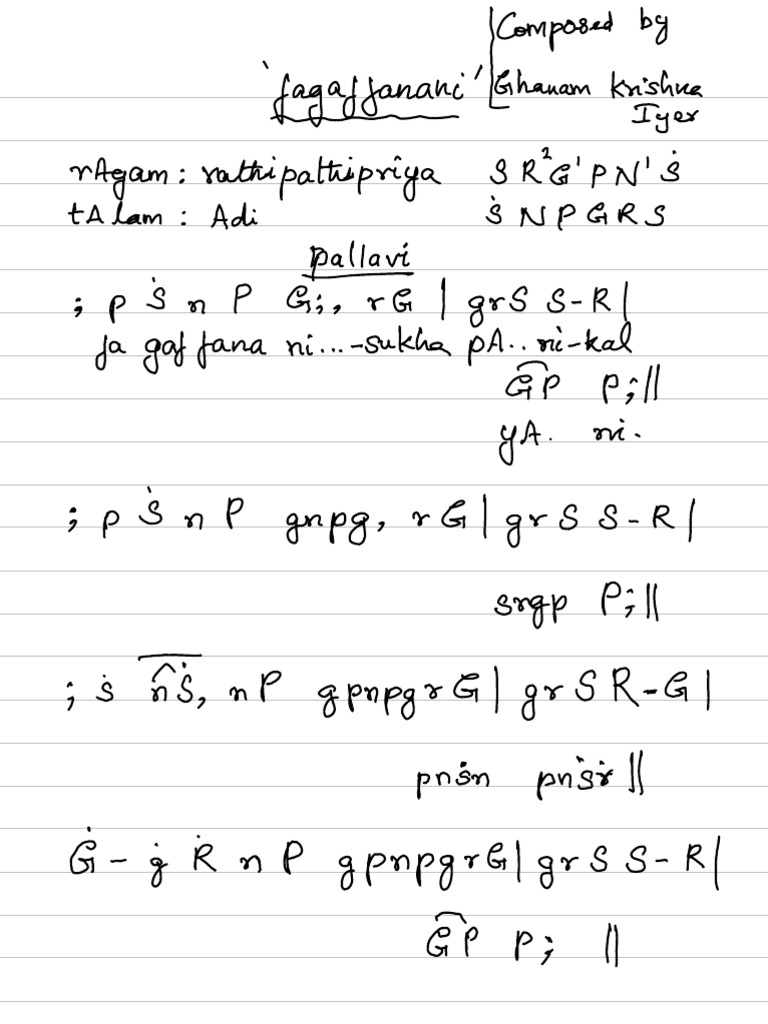 Composed by
'jagajjanani' Ghanam Krishna
Iyer
rAgam: rathipathipriya S R²G¹PN¹Ṡ
tAlam: Adi Ṡ N P G R S
pallavi
; p Ṡ n P G;, rG | grS S-R |
ja gaj jana ni...-sukha pA..ni-kal
GP P;||
yA. ni.
; p Ṡ n P gnpg, rG | grS S-R |
srgp P;||
; ṡ nṠ, nP gpnpgrG | grS R-G |
pnṡn pnṡṙ ||
Ġ - ġ Ṙ n P gpnpgrG | grS S-R |
GP P; ||